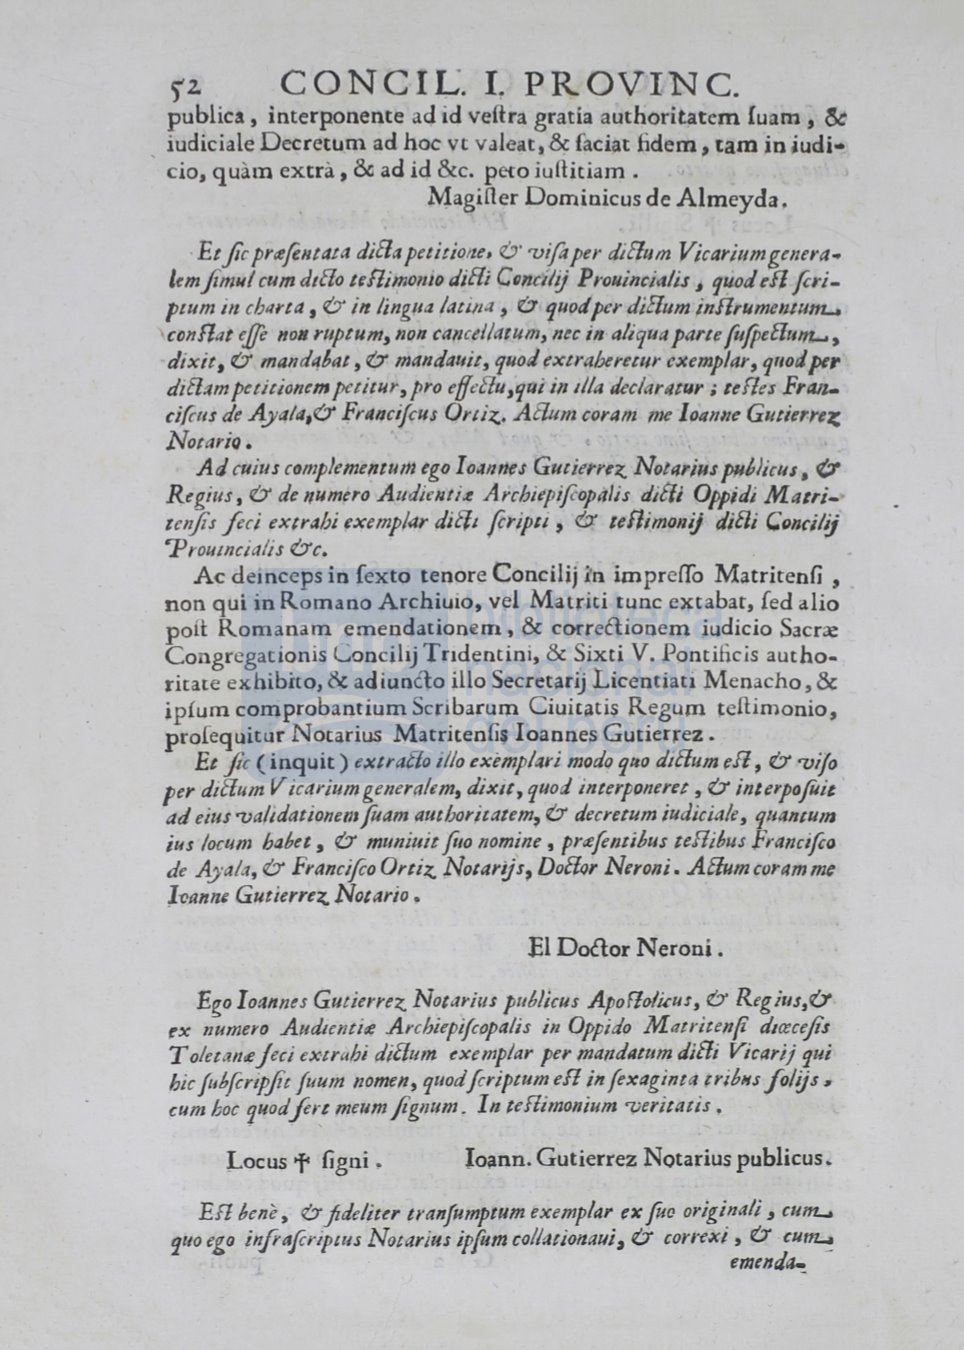 52 CONCIL. I. PROVINC.
publica, interponente ad id veſtra gratia authoritatem ſuam, &
iudiciale Decretum ad hoc vt valeat, & faciat fidem, tam in iudi-
cio, quàm extrà, & ad id &c. peto iuſtitiam.
Magiſter Dominicus de Almeyda.
Et ſic præſentata dicta petitione, & viſa per dictum Vicarium genera-
lem ſimul cum dicto teſtimonio dicti Concilij Prouincialis, quod eſt ſcri-
ptum in charta, & in lingua latina, & quod per dictum inſtrumentum
conſtat eſſe non ruptum, non cancellatum, nec in aliqua parte ſuſpectum,
dixit, & mandabat, & mandauit, quod extraheretur exemplar, quod per
dictam petitionem petitur, pro effectu, qui in illa declaratur; teſtes Fran-
ciſcus de Ayala, & Franciſcus Ortiz. Actum coram me Ioanne Gutierrez
Notario.
Ad cuius complementum ego Ioannes Gutierrez Notarius publicus, &
Regius, & de numero Audientiæ Archiepiſcopalis dicti Oppidi Matri-
tenſis feci extrahi exemplar dicti ſcripti, & teſtimonij dicti Concilij
Prouincialis &c.
Ac deinceps in ſexto tenore Concilij in impreſſo Matritenſi,
non qui in Romano Archiuio, vel Matriti tunc extabat, ſed alio
poſt Romanam emendationem, & correctionem iudicio Sacræ
Congregationis Concilij Tridentini, & Sixti V. Pontificis autho-
ritate exhibito, & adiuncto illo Secretarij Licentiati Menacho, &
ipſum comprobantium Scribarum Ciuitatis Regum teſtimonio,
proſequitur Notarius Matritenſis Ioannes Gutierrez.
Et ſic (inquit) extracto illo exemplari modo quo dictum eſt, & viſo
per dictum Vicarium generalem, dixit, quod interponeret, & interpoſuit
ad eius validationem ſuam authoritatem, & decretum iudiciale, quantum
ius locum habet, & muniuit ſuo nomine, præſentibus teſtibus Franciſco
de Ayala, & Franciſco Ortiz Notarijs, Doctor Neroni. Actum coram me
Ioanne Gutierrez Notario.
El Doctor Neroni.
Ego Ioannes Gutierrez Notarius publicus Apoſtolicus, & Regius, &
ex numero Audientiæ Archiepiſcopalis in Oppido Matritenſi diœceſis
Toletanæ feci extrahi dictum exemplar per mandatum dicti Vicarij qui
hic ſubſcripſit ſuum nomen, quod ſcriptum eſt in ſexaginta tribus folijs,
cum hoc quod fert meum ſignum. In teſtimonium veritatis.
Locus ✝ ſigni. Ioann. Gutierrez Notarius publicus.
Eſt benè, & fideliter tranſumptum exemplar ex ſuo originali, cum
quo ego infraſcriptus Notarius ipſum collationaui, & correxi, & cum
emenda-
biblioteca
nacional
del perú